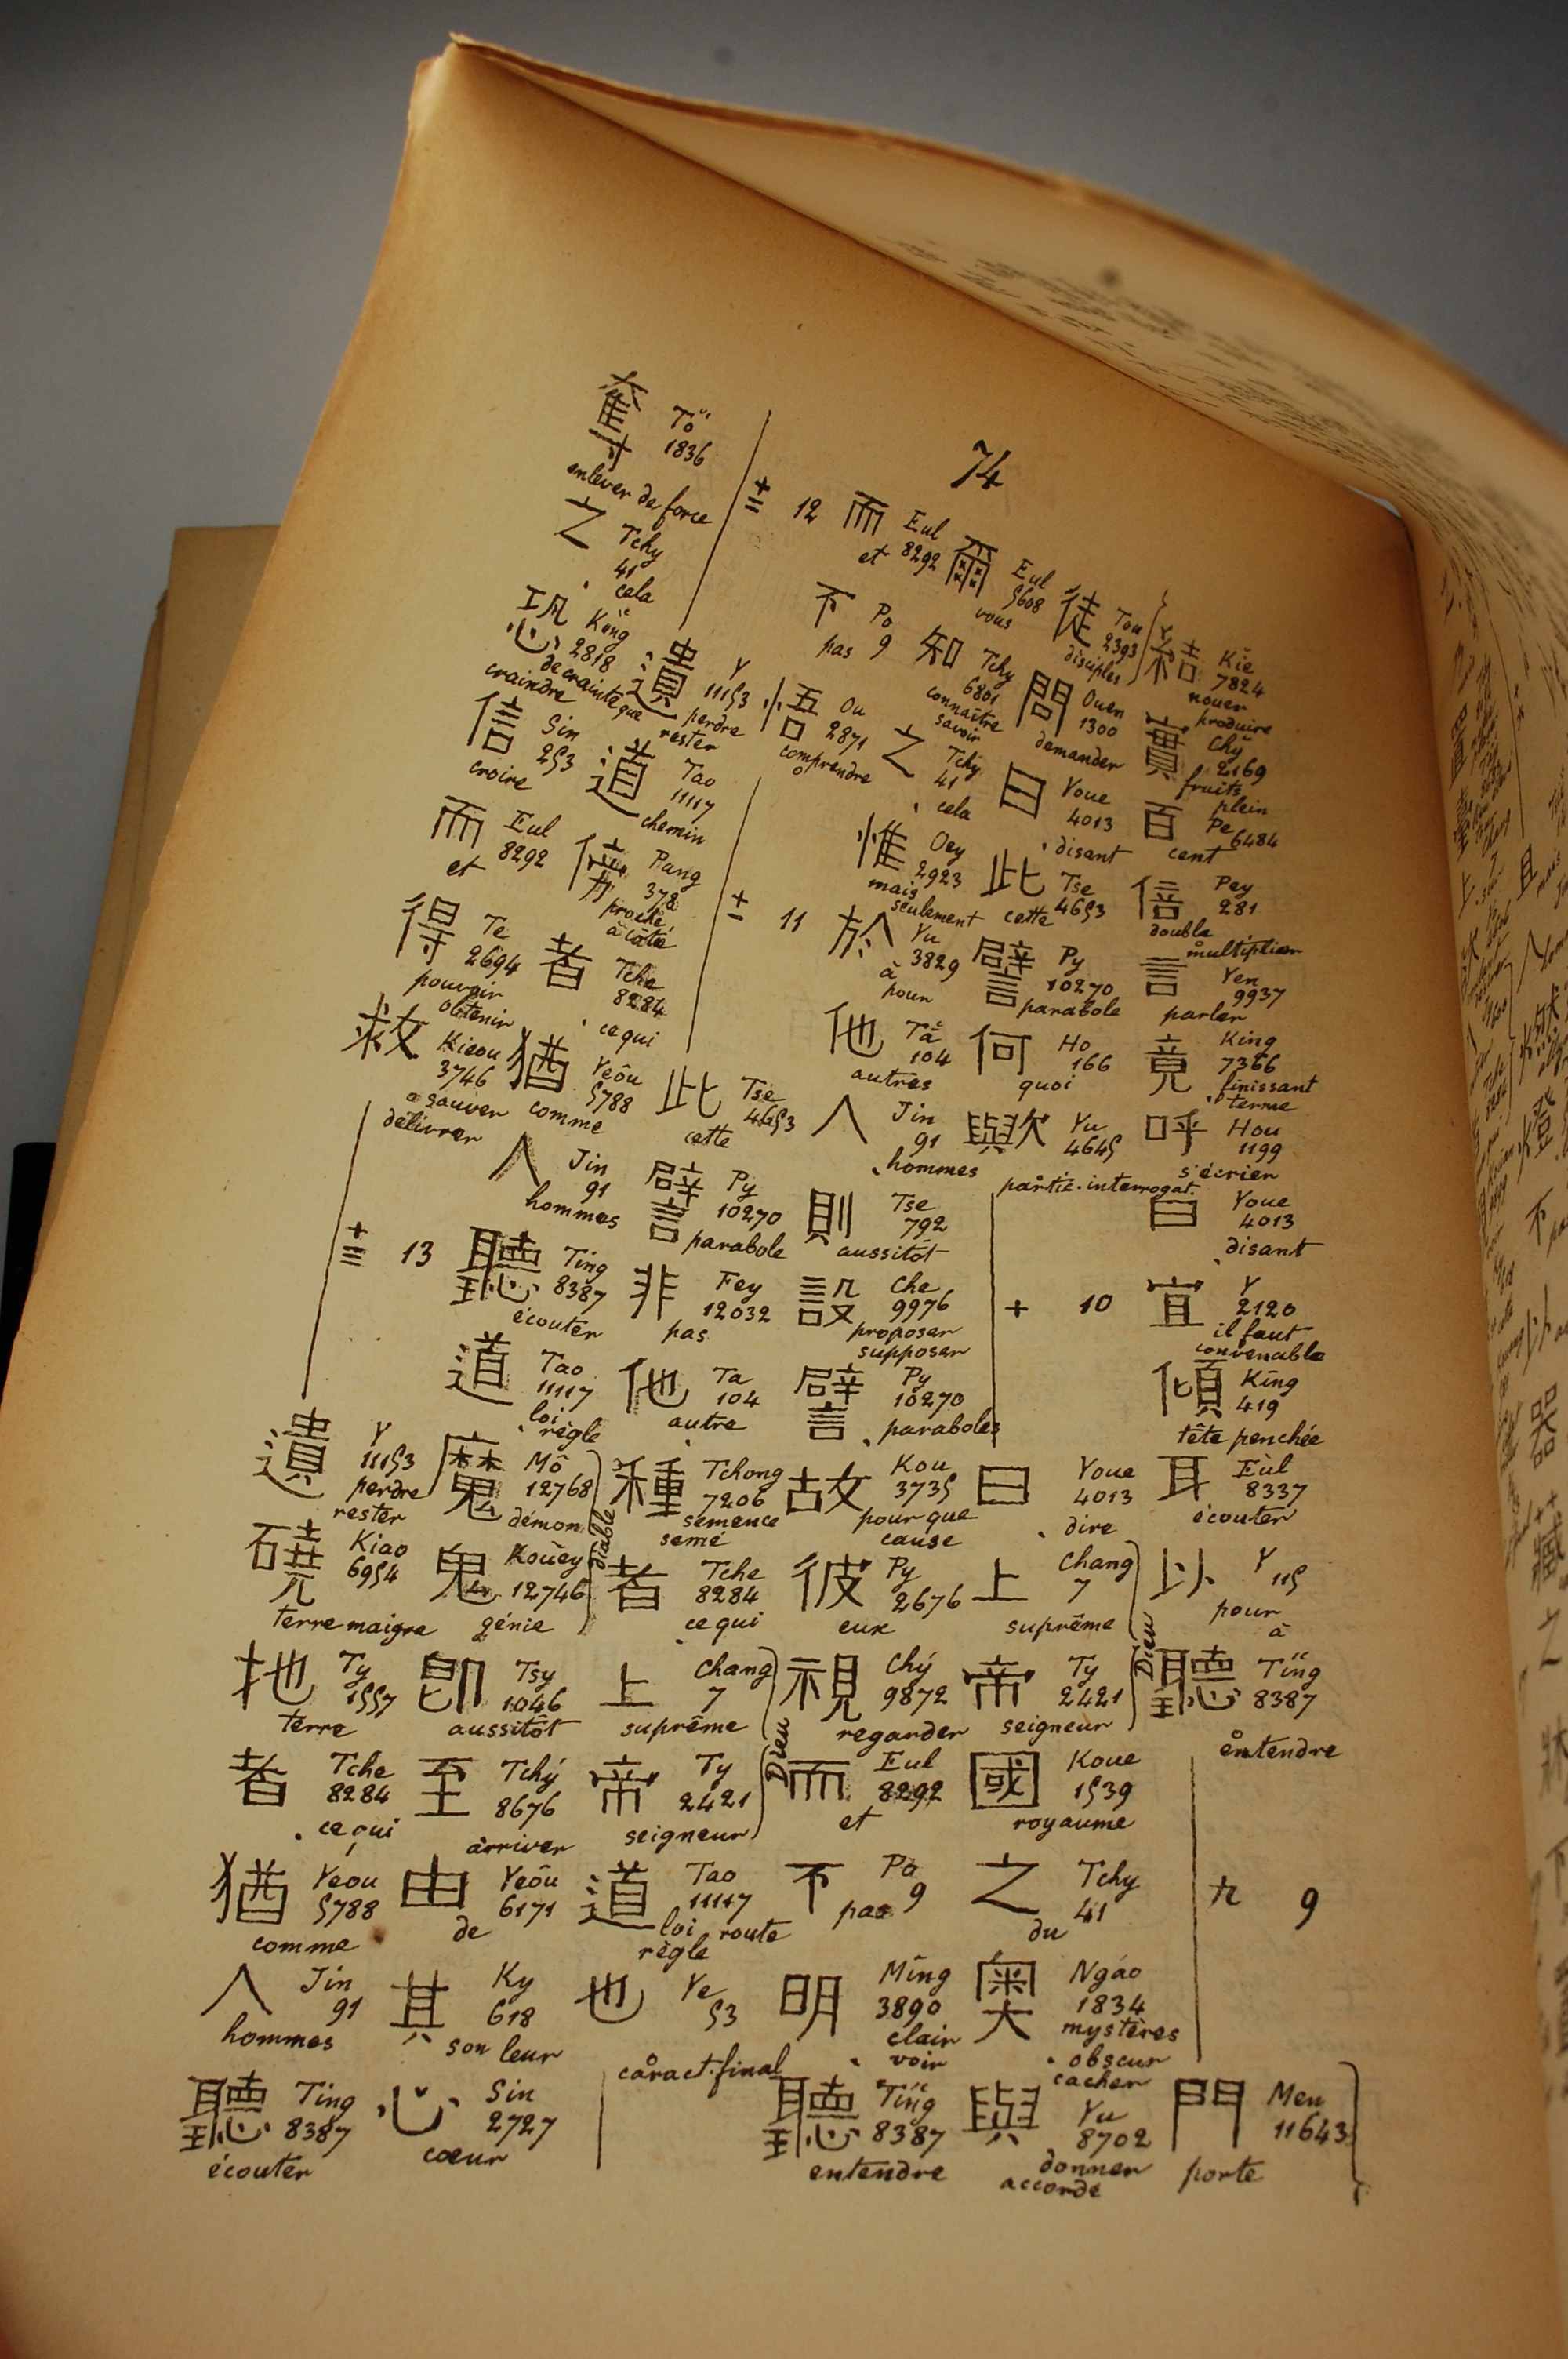 74
結 Kie 7824 nouer produire
實 Chy 2169 fruits plein
百 Pe 6484 cent
倍 Pey 281 double multiplier
言 Yen 9937 parler
竟 King 7366 finissant terme
呼 Hou 1199 s'écrier
曰 Youe 4013 disant
宜 Y 2120 il faut convenable
傾 King 419 tête penchée
耳 Eùl 8337 écouter
以 Y 115 pour à
聽 Ting 8387 entendre
九 9
門 Men 11643 porte
徒 Tou 2393 disciples
問 Ouen 1300 demander
曰 Youe 4013 disant
此 Tse 4653 cette
譬 Py 10270 parabole
何 Ho 166 quoi
歟 Yu 4645 partic. interrogat.
十 10
曰 Youe 4013 dire
上 Chang 7 suprême
帝 Ty 2421 seigneur
Dieu
國 Koue 1539 royaume
之 Tchy 41 du
奧 Ngáo 1834 mystères obscur cacher
與 Yu 8702 donner accordé
爾 Eul 5608 vous
知 Tchy 6801 connaître savoir
之 Tchy 41 cela
惟 Oey 2923 mais seulement
於 Yu 3829 à pour
他 Tă 104 autres
人 Jin 91 hommes
則 Tse 792 aussitôt
設 Che 9976 proposer supposer
譬 Py 10270 paraboles
故 Kou 3735 pour que cause
彼 Py 2676 eux
視 Chý 9872 regarder
而 Eul 8292 et
不 Po 9 pas
明 Mîng 3890 clair voir
聽 Ting 8387 entendre
十二 12
而 Eul 8292 et
不 Po 9 pas
悟 Ou 2871 comprendre
十一 11
此 Tse 4653 cette
譬 Py 10270 parabole
非 Fey 12032 pas
他 Ta 104 autre
種 Tchong 7206 semence semé
者 Tche 8284 ce qui
上 Chang 7 suprême
帝 Ty 2421 seigneur
Dieu
道 Tao 11117 loi route règle
也 Ye 53 caract. final
遺 Y 11153 perdre rester
道 Tao 11117 chemin
旁 Pang 378 proche à côté
者 Tche 8284 ce qui
猶 Yeôu 5788 comme
人 Jin 91 hommes
聽 Ting 8387 écouter
道 Tao 11117 loi règle
魔 Mô 12768 démon
鬼 Kouey 12746 génie
diable
即 Tsy 1046 aussitôt
至 Tchý 8676 arriver
由 Yeôu 6171 de
其 Ky 618 son leur
心 Sin 2727 cœur
奪 Tŏ 1836 enlever de force
之 Tchy 41 cela
恐 Kong 2818 de crainte que craindre
信 Sin 253 croire
而 Eul 8292 et
得 Te 2694 pouvoir obtenir
救 Kieou 3746 sauver délivrer
十三 13
遺 Y 11153 perdre rester
磽 Kiao 6954 terre maigre
地 Ty 1557 terre
者 Tche 8284 ce qui
猶 Yeou 5788 comme
人 Jin 91 hommes
聽 Ting 8387 écouter